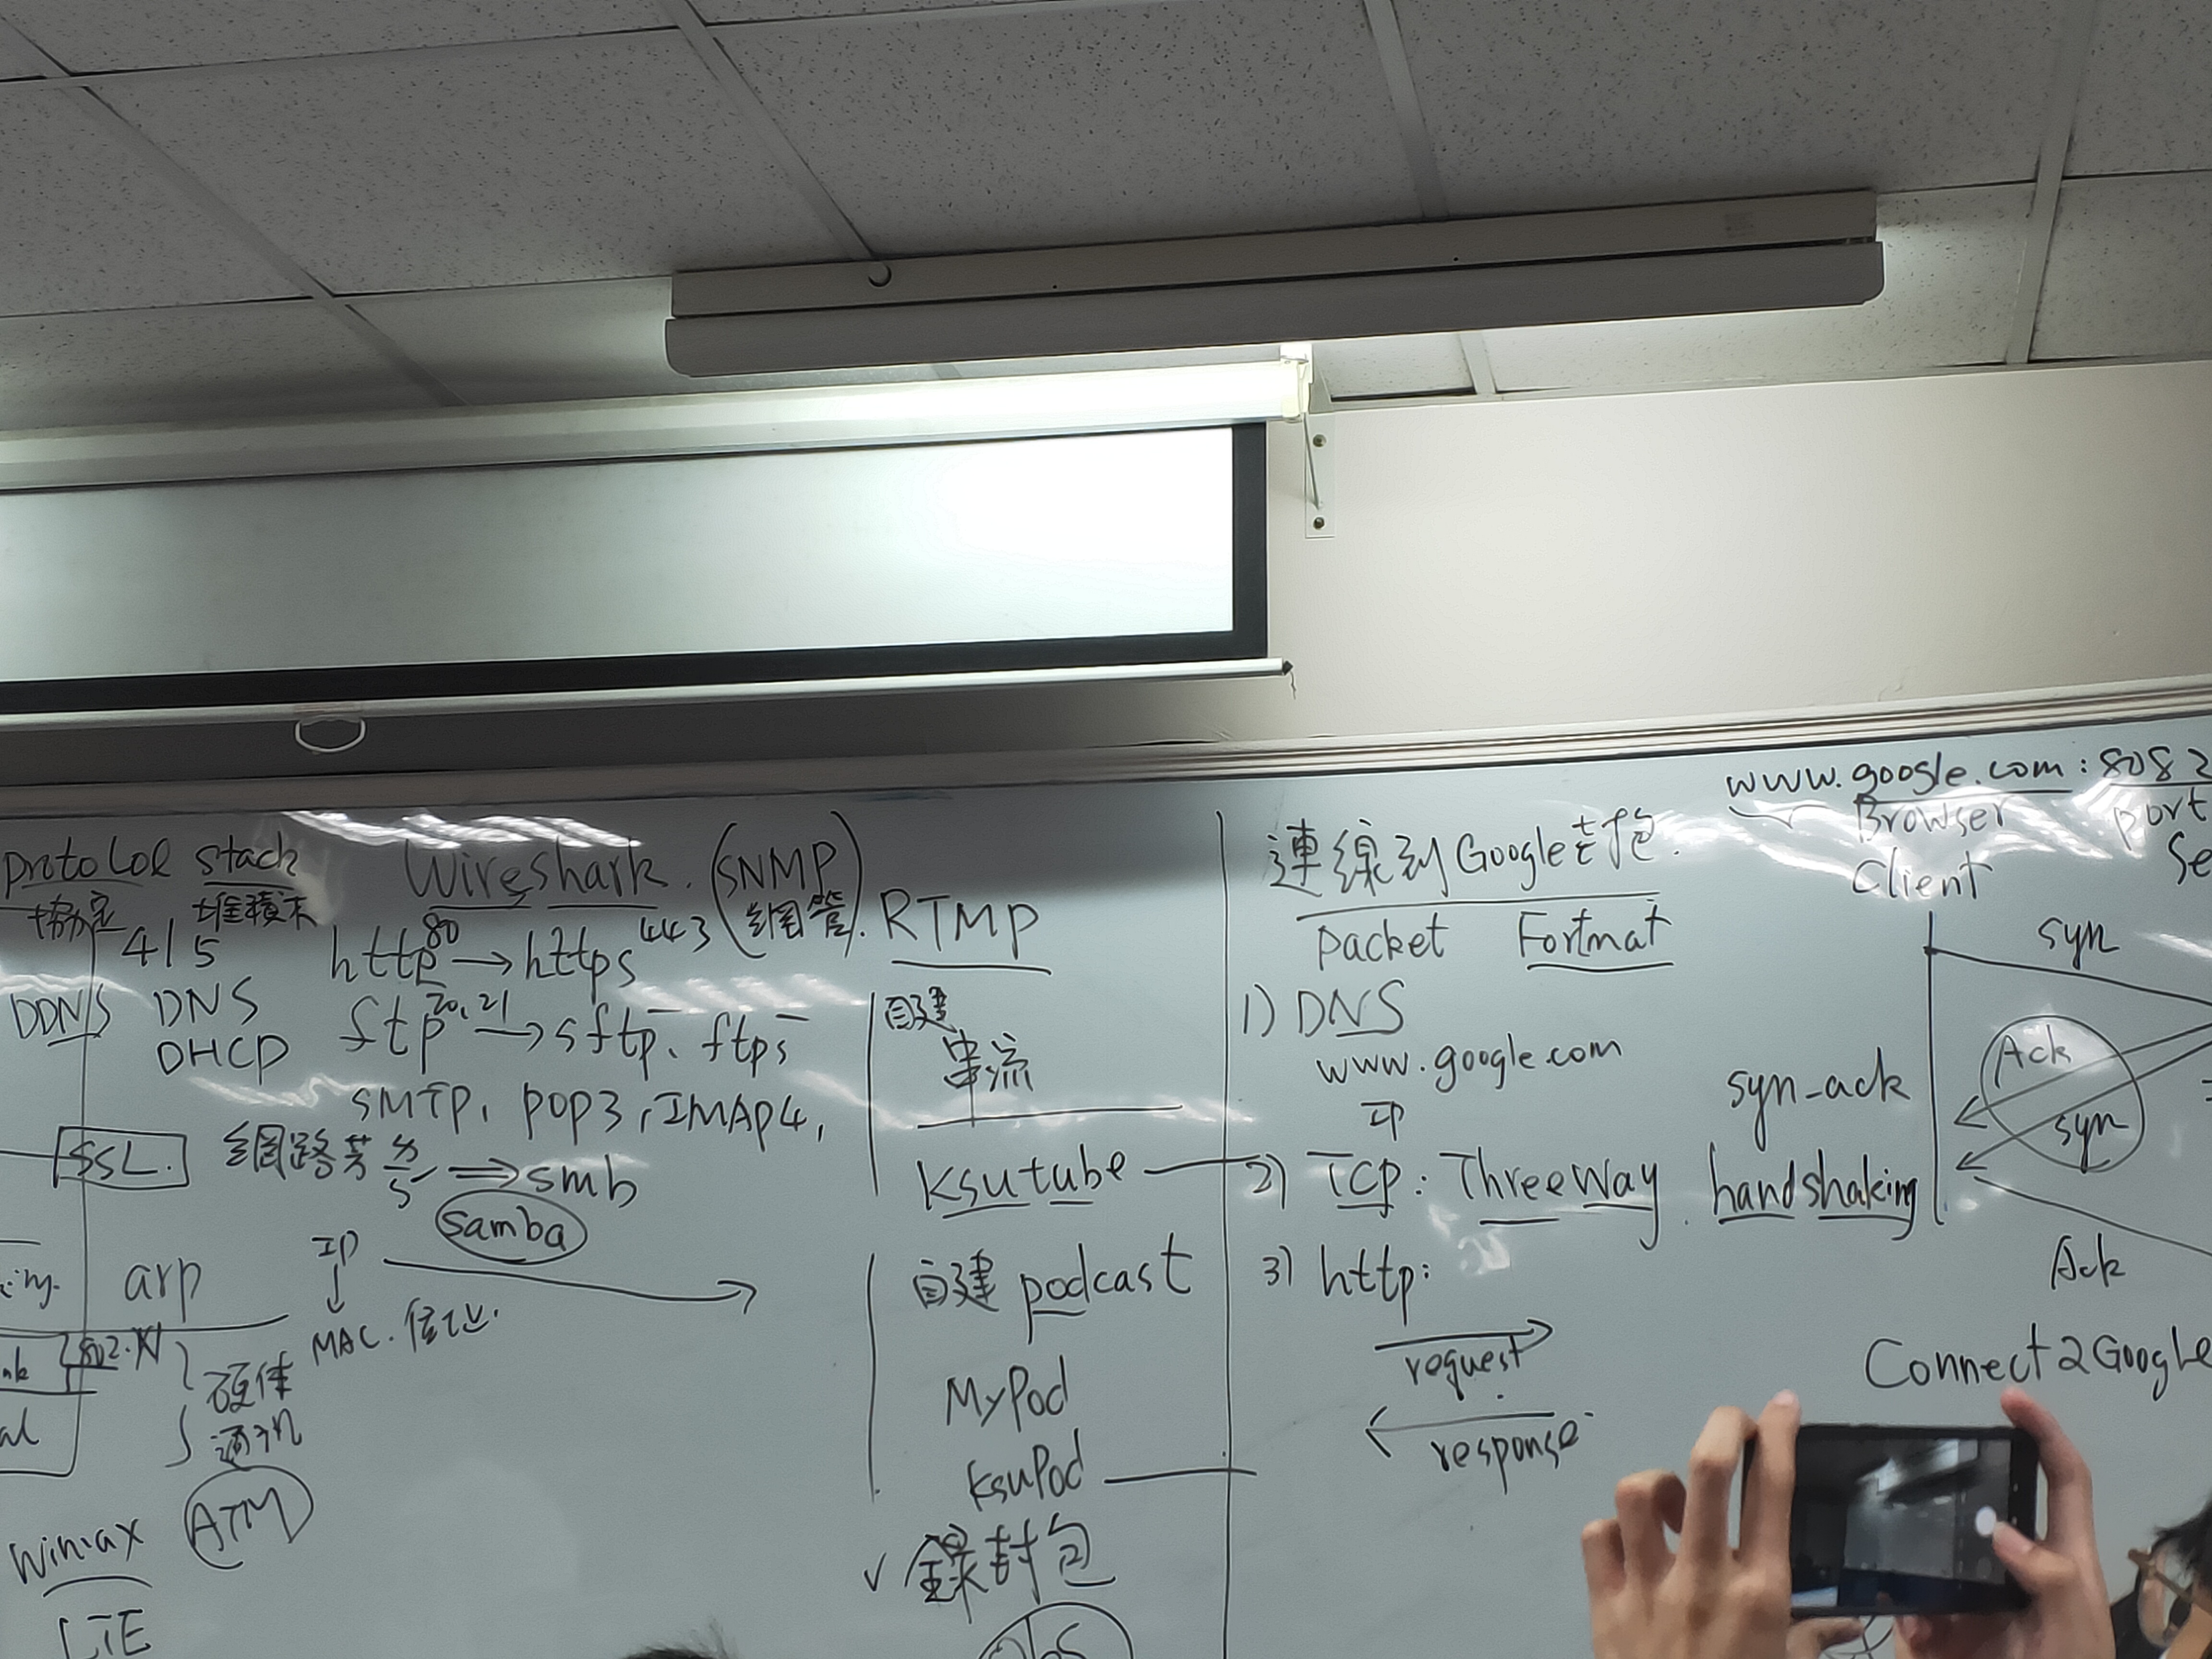 protocol stack
協定 堆積木
415
DDNS DNS
DHCP
SSL.
arp
802.
硬体
通訊
ATM
Wimax
LTE
Wireshark. (SNMP 網管).
http 80 → https 443
ftp 20, 21 → sftp、ftps
SMTP, POP3, IMAP4,
網路芳 → smb
samba
IP
↓
MAC.位址.
RTMP
自建
串流
ksutube
自建 podcast
MyPod
KsuPod
✓ 錄封包
連線到Google
packet Fortmat
1) DNS
www.google.com
IP
2) TCP: Three Way handshaking
3) http:
request
response
www.google.com:8082
Browser port
Client Se
syn
Ack
syn-ack
syn
Ack
Connect2Google